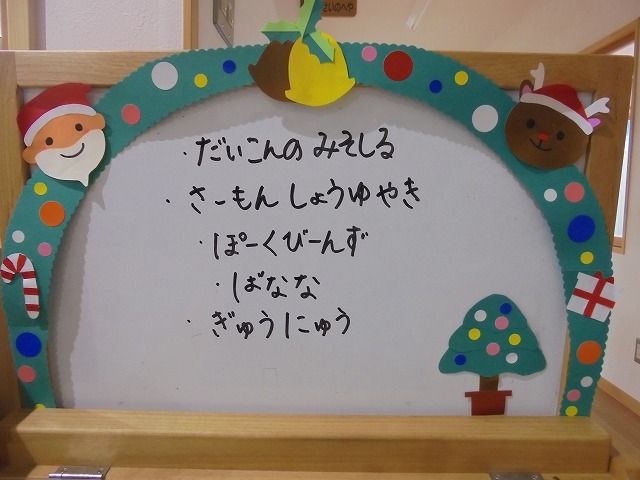 さいのへや
・だいこんの みそしる
・さーもん しょうゆやき
・ぽーくびーんず
・ばなな
・ぎゅうにゅう